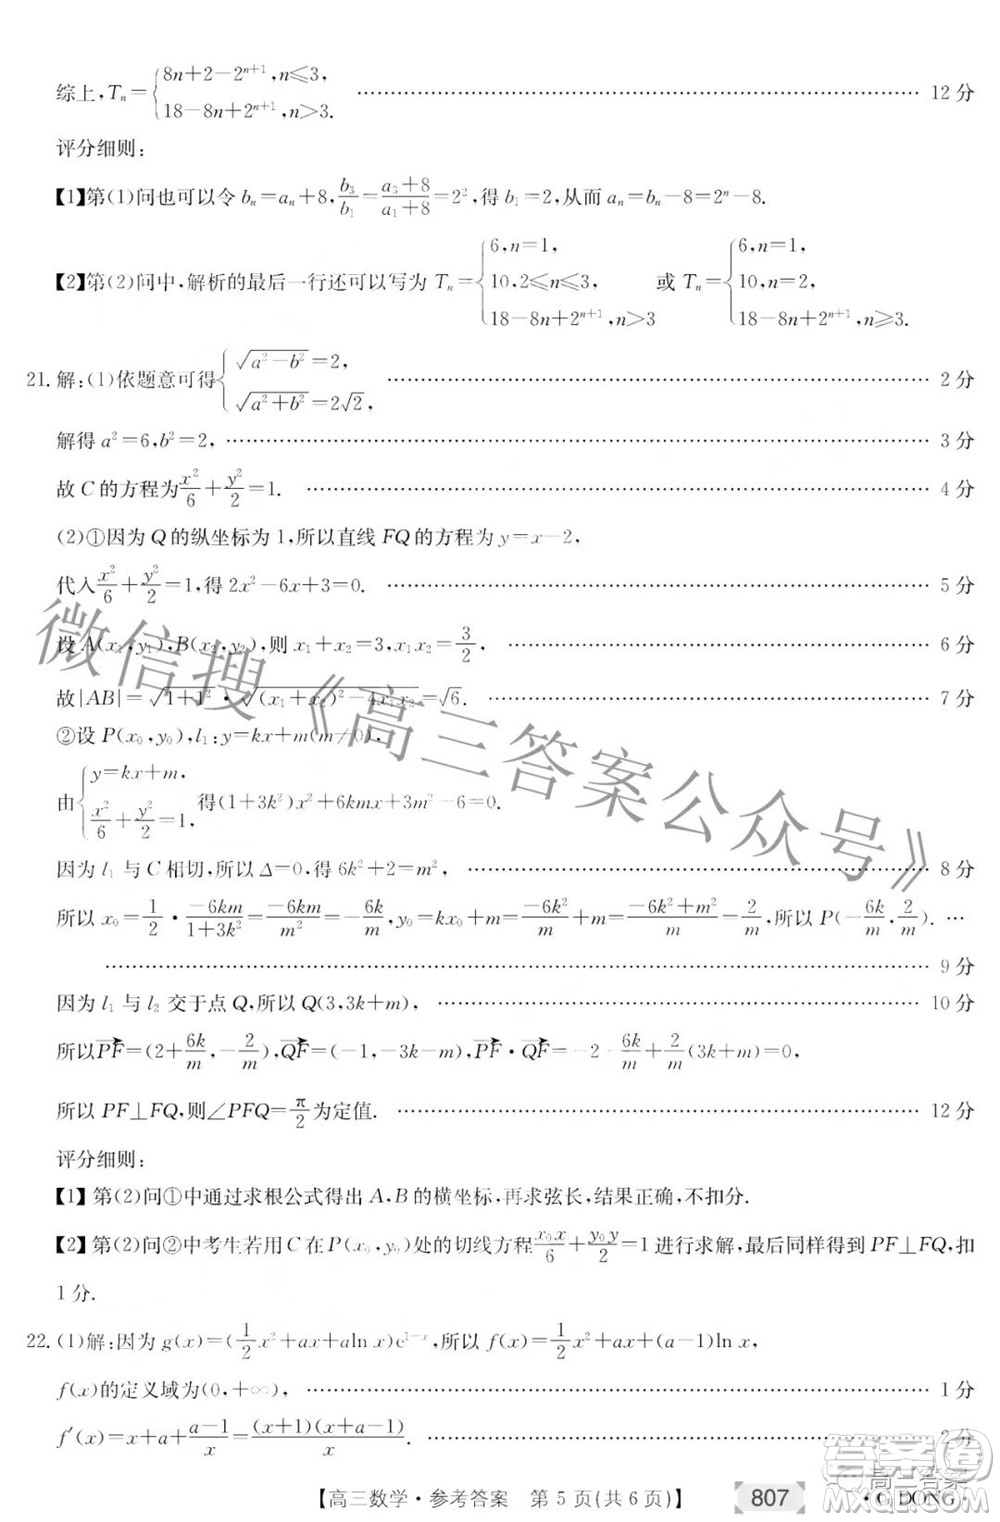 综上,Tₙ={8n+2−2ⁿ⁺¹,n⩽3, 18−8n+2ⁿ⁺¹,n>3. 12 分
评分细则:
【1】第(1)问也可以令 bₙ=aₙ+8, b₃/b₁=(a₃+8)/(a₁+8)=2²,得 b₁=2,从而 aₙ=bₙ−8=2ⁿ−8.
【2】第(2)问中,解析的最后一行还可以写为 Tₙ={6,n=1, 10,2⩽n⩽3, 18−8n+2ⁿ⁺¹,n>3 或 Tₙ={6,n=1, 10,n=2, 18−8n+2ⁿ⁺¹,n⩾3.
21. 解:(1)依题意可得{√(a²−b²)=2, √(a²+b²)=2√2, 2 分
解得 a²=6,b²=2, 3 分
故 C 的方程为 x²/6+y²/2=1. 4 分
(2)①因为 Q 的纵坐标为 1,所以直线 FQ 的方程为 y=x−2,
代入 x²/6+y²/2=1,得 2x²−6x+3=0. 5 分
设 A(x₁,y₁),B(x₂,y₂),则 x₁+x₂=3,x₁x₂=3/2, 6 分
故|AB|=√(1+1²)·√((x₁+x₂)²−4x₁x₂)=√6. 7 分
②设 P(x₀,y₀),l₁:y=kx+m(m≠0),
由{y=kx+m, x²/6+y²/2=1, 得(1+3k²)x²+6kmx+3m²−6=0.
因为 l₁ 与 C 相切,所以 Δ=0,得 6k²+2=m², 8 分
所以 x₀=1/2·(−6km)/(1+3k²)=−6km/m²=−6k/m,y₀=kx₀+m=−6k²/m+m=(−6k²+m²)/m=2/m,所以 P(−6k/m,2/m). …
9 分
因为 l₁ 与 l₂ 交于点 Q,所以 Q(3,3k+m), 10 分
所以PF=(2+6k/m,−2/m),QF=(−1,−3k−m),PF·QF=−2−6k/m+2/m(3k+m)=0,
所以 PF⊥FQ,则∠PFQ=π/2为定值. 12 分
评分细则:
【1】第(2)问①中通过求根公式得出 A,B 的横坐标,再求弦长,结果正确,不扣分.
【2】第(2)问②中考生若用 C 在 P(x₀,y₀)处的切线方程 x₀x/6+y₀y/2=1 进行求解,最后同样得到 PF⊥FQ,扣
1 分.
22. (1)解:因为 g(x)=(1/2x²+ax+aln x)e¹⁻ˣ,所以 f(x)=1/2x²+ax+(a−1)ln x,
f(x)的定义域为(0,+∞), 1 分
f′(x)=x+a+(a−1)/x=(x+1)(x+a−1)/x. 2 分
【高三数学·参考答案 第 5 页(共 6 页)】 807 · G DONG ·
微信搜《高三答案公众号》
高三答案
答案圈
MXQE.COM